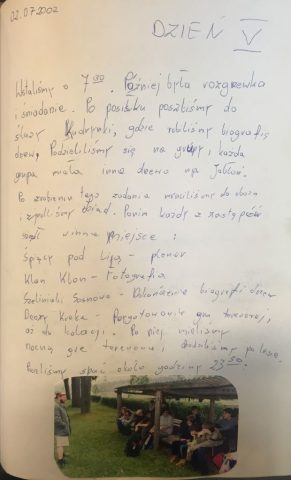 02.07.2002
DZIEŃ V
Wstaliśmy o 7⁰⁰. Później była rozgrzewka
i śniadanie. Po posiłku poszliśmy do
śluzy, gdzie robiliśmy biografię
drzew. Podzieliliśmy się na grupy i każda
grupa miała inne drzewo na
Po zrobieniu tego zadania wróciliśmy do obozu
i zjedliśmy obiad. każdy z zastępów
miejsce:
Śpiący pod Lipą - plener
Klan Klon - Fotografia
Sosnowa - Dokończenie biografii drzew
Kreka - Przygotowanie gry terenowej,
aż do kolacji. Po niej mieliśmy
nocną grę terenową, chodziliśmy po lesie.
Poszliśmy spać około godziny 23⁵⁰.